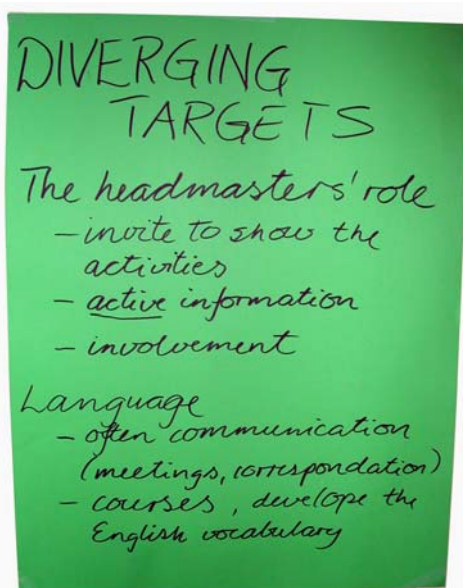 DIVERGING
TARGETS
The headmasters' role
- invite to show the
activities
- active information
- involvement
Language
- often communication
(meetings, correspondation)
- courses, develope the
English vocabulary